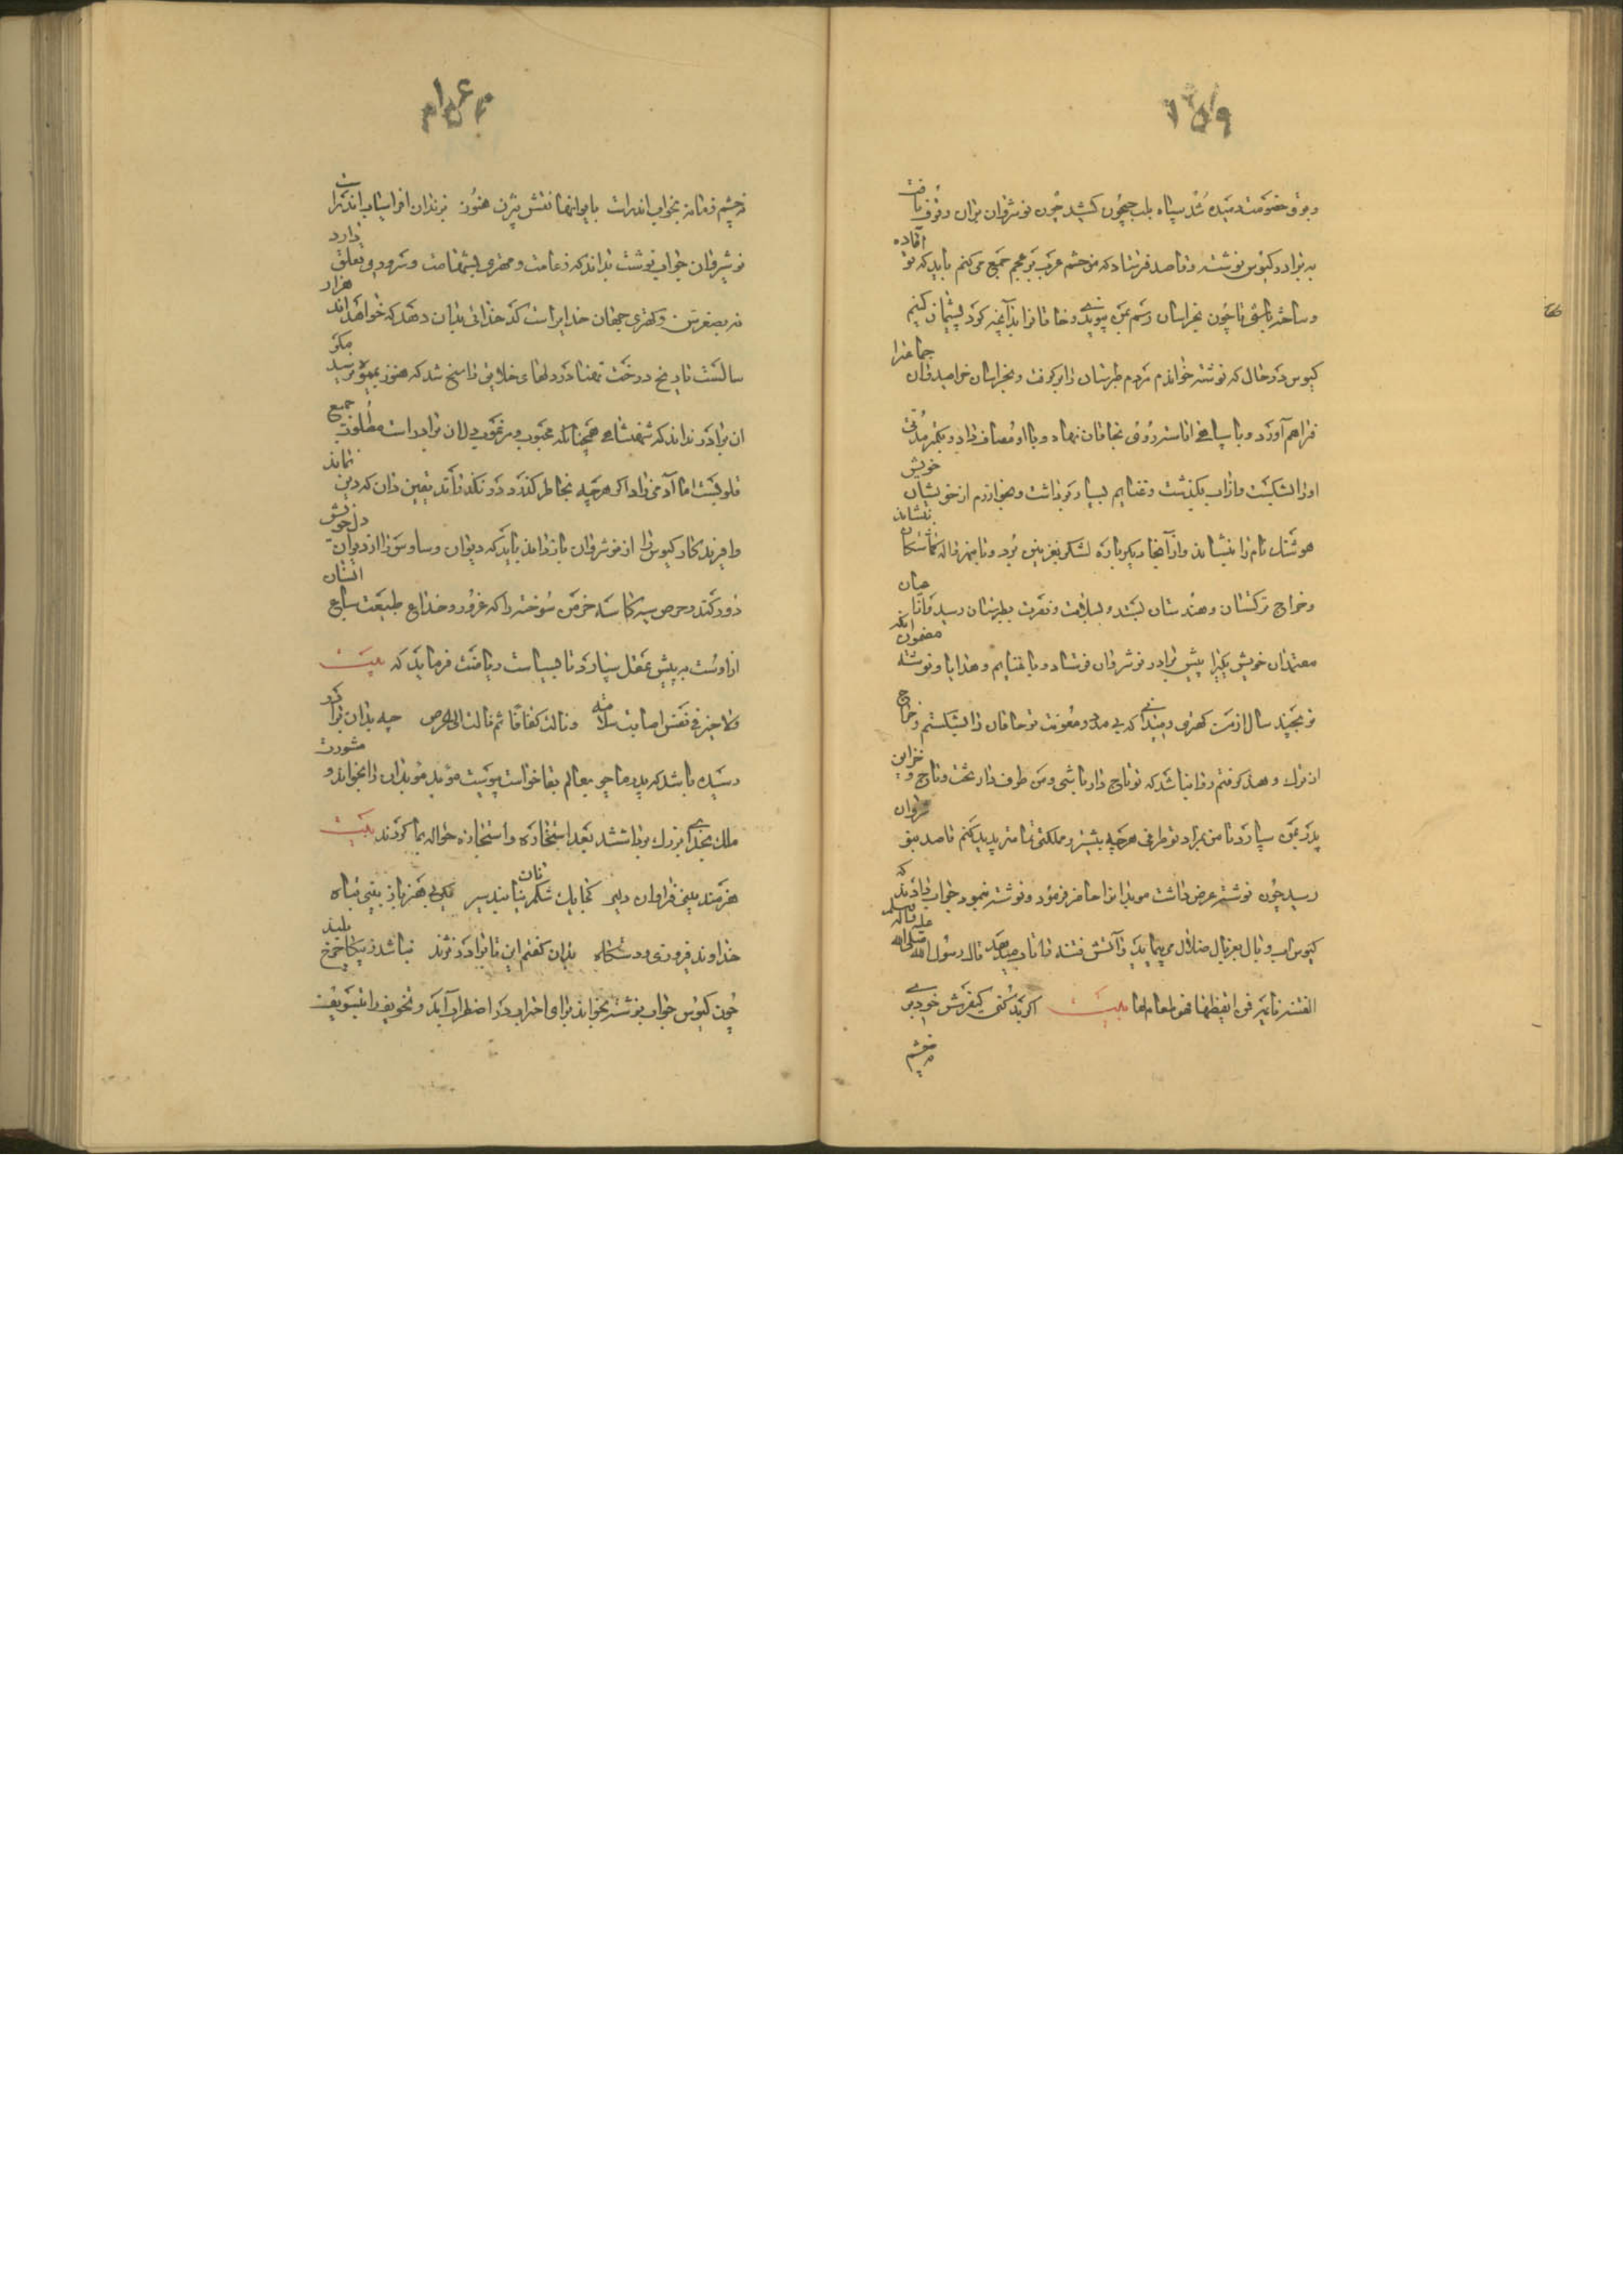 ۱۵۹
و بر وی خصومت دمیده شد سپاه بلب جیحون کشید چون نوشروان بران وقوف یافت
به برادر کیوس نوشته و قاصد فرستاد که من حشم عرب بر عجم جمع می کنم باید که تو آماده
و ساخته باشی تا چون بخراسان رسم بمن پیوندی و خاقانرا بدآنچه کرد پشیمان کنیم
کیوس در حال که نوشته خواندم مردم طبرستان را برگرفت و بخراسان خرامید و آن جماعترا
فراهم آورد و با سپاهی آراسته روی بخاقان نهاد و با او مصاف داد و بکمتر مدتی
او را بشکست و از آب بگذشت و غنایم بسیار برداشت و بخوارزم از خویشان خویش
هوشنگ نام را بنشاند و از آنجا دیگرباره لشکر بغزنین برد و تا بنهرواله گماشتگان بنشاند
و خراج ترکستان و هندستان بستد و بسلامت و نصرت بطبرستان رسید و از میان
معتمدان خویش یکیرا پیش برادر نوشروان فرستاد و با غنایم و هدایا و نوشته مضمون آنکه
تو بچند سال از من کهتری و میدانی که بی مدد و معونت تو خاقان را بشکستم و خراج
از ترک و هند گرفتم روا نباشد که تو تاج دار باشی و من طرف دار تخت و تاج و خزاین
پدر بمن سپار تا من بمراد تو طرفی هر چه بیشتر و مملکتی تمامتر پدید کنم قاصد بنوشروان
رسید چون نوشته عرض داشت موبدانرا حاضر فرمود و نوشته بنمود جواب دادند که
کیوس آب وبال بغربال ضلال می پیماید و آتش فتنه را باد میدهد قال رسول الله صلی الله علیه و آله و سلم
الفتنة نائمة فمن ایقظها فهو طعام لها بیت اگر بد کنی کیفرش خود بری
نه چشم
۱۶۰
نه چشم زمانه بخواب اندرست بایوانها نقش بیژن هنوز بزندان افراسیاب اندرست
نوشروان جواب نوشت بداند که زعامت و مهتری بشهامت و سروری تعلق دارد
نه بصغر سن و کهتری جهان خدایراست کذخدائی بدان دهد که خواهد اند هزار
سالست تا بیخ درخت تمنا در دلهای خلایق راسخ شد که هنوز بمیوه نرسید مگر
آن برادر نداند که شهنشاهی همچنانکه محبوب و مرغوب دل آن برادراست مطلوب جمیع
قلوبست اما آدمی زاد اگر هر چه بخاطر گذرد در نگذراند یقین دان که دین نماند
دل خویش
دور کند و حرص سیه کاسه خرمن سوخته را که غرور و خداع طبیعت سباع انسان
ازاوست به پیش عقل سپارد تا بسیاست ریاضت فرماید که بیت
ولا خیر فی نفس اصابت سلامة و نالت کفافا ثم مالت الی الحرص چه بدان برادر
رسیده باشد که پدر ما چو بعالم بقا خواست پیوست موبد موبدان را بخواند و مشورت
ملک بخدای بزرک برداشت بعد استخاره و استجازه حواله بما کردند بیت
هنرمند بینی فراوان دلیر
خداوند فروزی و دستکاه بدان گفتم این تا برادر نژند نباشد ز یکاخ چرخ بلند
چون کیوس جواب نوشته بخواند برای اجتراب در اضطراب آید و تخویف را بتسویف